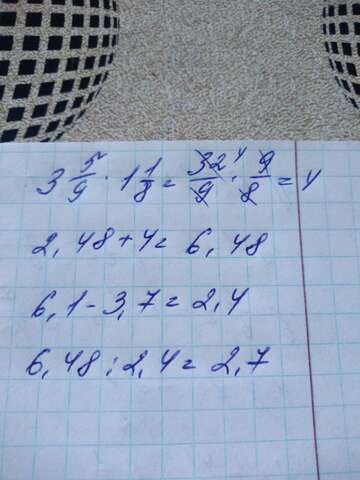 3 5/9 · 1 1/8 = 32/9 4 · 9/8 = 4
2,48 + 4 = 6,48
6,1 - 3,7 = 2,4
6,48 : 2,4 = 2,7